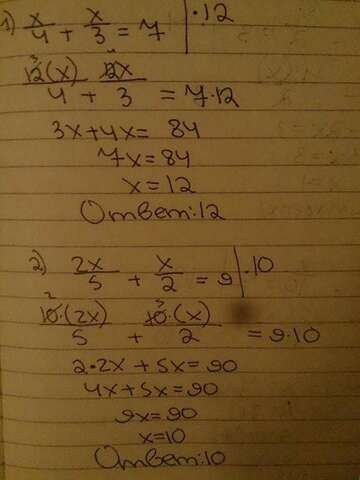 1) x/4 + x/3 = 7 | ·12
12(x)/4 + 12x/3 = 7·12
3x+4x= 84
7x=84
x=12
Ответ:12
2) 2x/5 + x/2 = 9 | ·10
10·(2x)/5 + 10·(x)/2 = 9·10
2·2x+5x=90
4x+5x=90
9x=90
x=10
Ответ:10